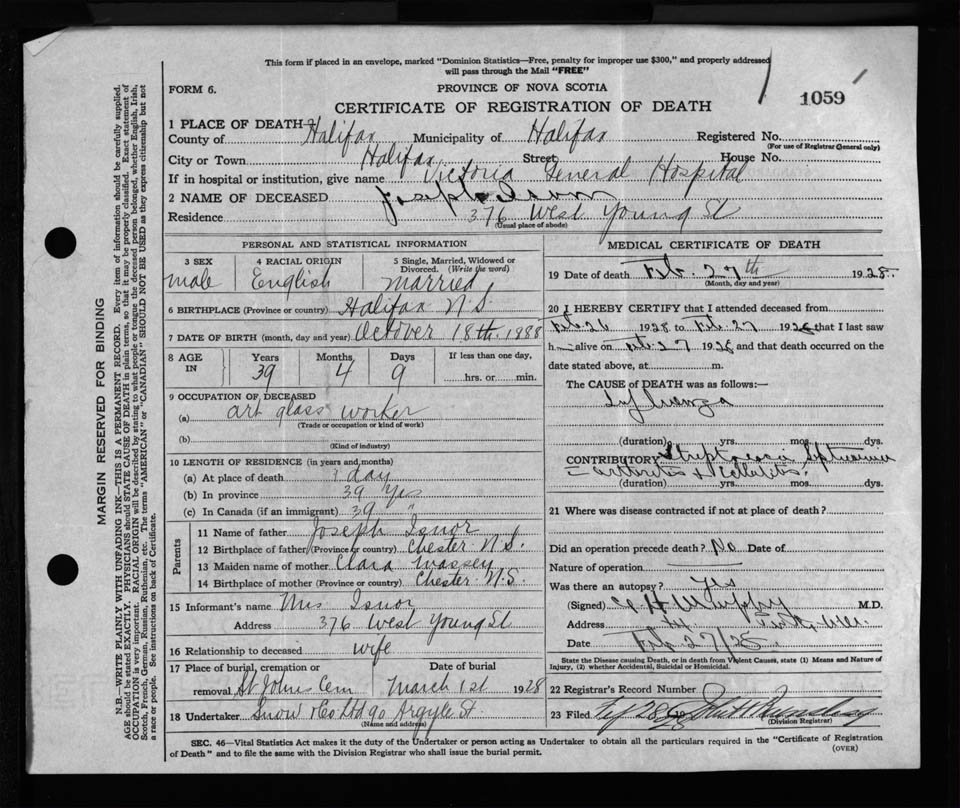 This form if placed in an envelope, marked "Dominion Statistics—Free, penalty for improper use $300," and properly addressed
will pass through the Mail "FREE"
FORM 6.
PROVINCE OF NOVA SCOTIA
1059
CERTIFICATE OF REGISTRATION OF DEATH
1 PLACE OF DEATH—
County of Halifax Municipality of Halifax Registered No.
(For use of Registrar General only)
City or Town Halifax Street House No.
If in hospital or institution, give name Victoria General Hospital
2 NAME OF DECEASED Joseph Isnor
Residence 376 West Young St
(Usual place of abode)
PERSONAL AND STATISTICAL INFORMATION
3 SEX 4 RACIAL ORIGIN 5 Single, Married, Widowed or
Divorced. (Write the word)
male English married
6 BIRTHPLACE (Province or country) Halifax N.S.
7 DATE OF BIRTH (month, day and year) October 18th. 1888
8 AGE IN Years Months Days If less than one day,
39 4 9 hrs. or min.
9 OCCUPATION OF DECEASED
(a) art glass worker
(Trade or occupation or kind of work)
(b)
(Kind of industry)
10 LENGTH OF RESIDENCE (in years and months)
(a) At place of death 1 day
(b) In province 39 Yrs
(c) In Canada (if an immigrant) 39 "
Parents
11 Name of father Joseph Isnor
12 Birthplace of father (Province or country) Chester N.S.
13 Maiden name of mother Clara
14 Birthplace of mother (Province or Country) Chester N.S.
15 Informant's name Mrs Isnor
Address 376 West Young St
16 Relationship to deceased wife
17 Place of burial, cremation or Date of burial
removal St Johns Cem March 1st 1928
18 Undertaker Snow & Co Ltd 90 Argyle St
(Name and address)
MEDICAL CERTIFICATE OF DEATH
19 Date of death Feb. 27th 1928
(Month, day and year)
20 I HEREBY CERTIFY that I attended deceased from
Feb 26 1928 to Feb. 27 1928 that I last saw
h alive on Feb 27 1928 and that death occurred on the
date stated above, at m.
The CAUSE OF DEATH was as follows:—
Influenza
(duration) yrs. mos. dys.
CONTRIBUTORY
(duration) yrs. mos. dys.
21 Where was disease contracted if not at place of death?
Did an operation precede death? No Date of
Nature of operation
Was there an autopsy? Yes
(Signed) Murphy M.D.
Address
Date Feb 27/28
State the Disease causing Death, or in death from Violent Causes, state (1) Means and Nature of
Injury, (2) whether Accidental, Suicidal or Homicidal.
22 Registrar's Record Number
23 Filed 28
(Division Registrar)
SEC. 46—Vital Statistics Act makes it the duty of the Undertaker or person acting as Undertaker to obtain all the particulars required in the "Certificate of Registration
of Death" and to file the same with the Division Registrar who shall issue the burial permit.
(OVER)
MARGIN RESERVED FOR BINDING
N.B.—WRITE PLAINLY WITH UNFADING INK—THIS IS A PERMANENT RECORD. Every item of information should be carefully supplied.
AGE should be stated EXACTLY. PHYSICIANS should STATE CAUSE OF DEATH in plain terms, so that it may be properly classified. Exact statement of
OCCUPATION is very important. RACIAL ORIGIN will be described by stating to what people or tongue the deceased person belonged, whether English, Irish,
Scotch, French, German, Russian, Ruthenian, etc. The terms "AMERICAN" or "CANADIAN" SHOULD NOT BE USED as they express citizenship but not
a race or people. See instructions on back of Certificate.